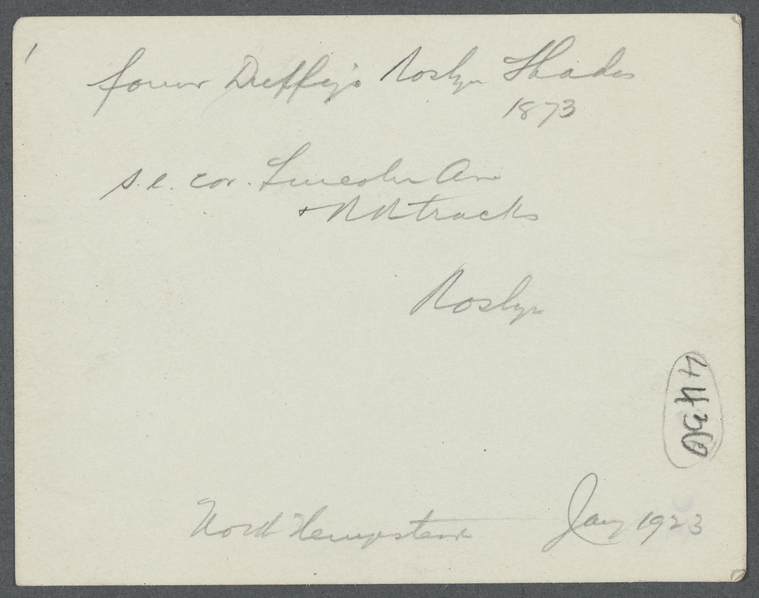 former Duffy's Roslyn Shades
1873
s.e. cor. Lincoln Ave
+ RR tracks
Roslyn
4430
North Hempstead Jany 1923